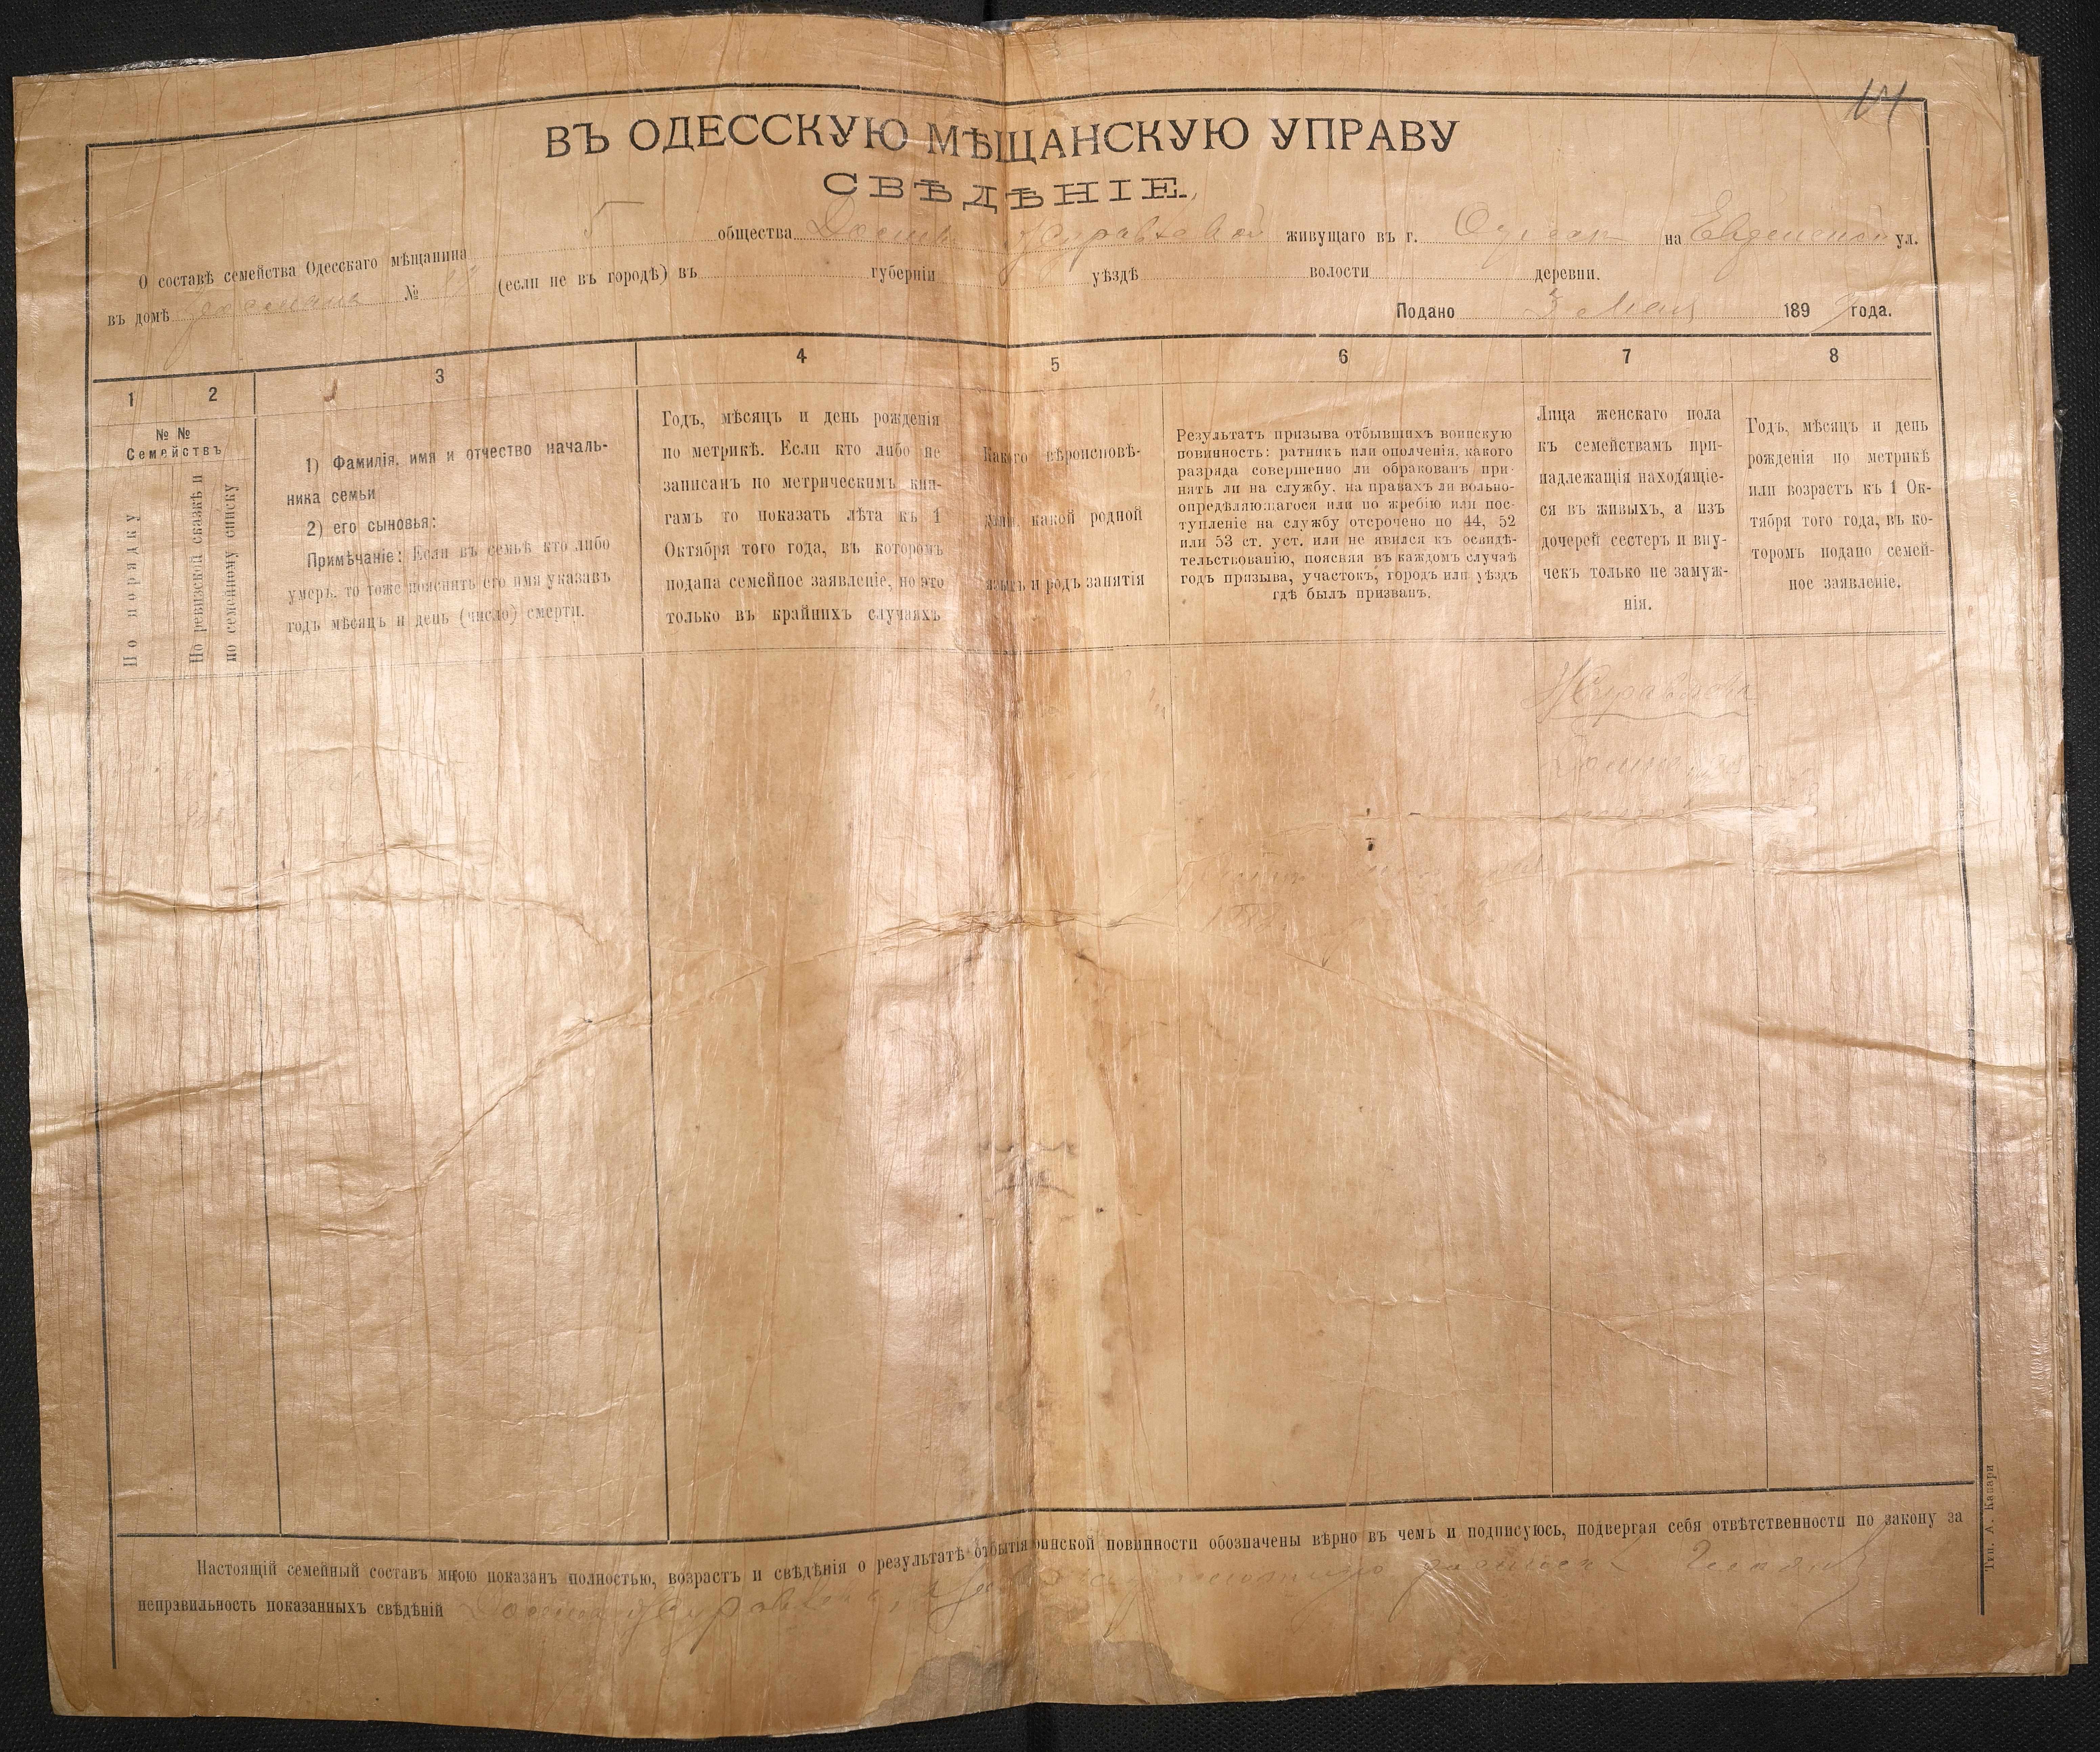 14
ВЪ ОДЕССКУЮ МѢЩАНСКУЮ УПРАВУ
СВѢДѢНІЕ.
О составѣ семейства Одесскаго мѣщанина 5 общества Журавлевой живущаго въ г. Одессѣ на ул.
въ домѣ № (если не въ городѣ) въ губерніи уѣздѣ волости деревни.
Подано 3 Мая 189 года.
1 2 3 4 5 6 7 8
№ №
Семействъ
По порядку
По ревизской сказкѣ и
по семейному списку
1) Фамилія, имя и отчество началь-
ника семьи
2) его сыновья:
Примѣчаніе: Если въ семьѣ кто либо
умеръ, то тоже пояснить его имя указавъ
годъ мѣсяцъ и день (число) смерти.
Годъ, мѣсяцъ и день рожденія
по метрикѣ. Если кто либо не
записанъ по метрическимъ кни-
гамъ то показать лѣта къ 1
Октября того года, въ которомъ
подана семейное заявленіе, но это
только въ крайнихъ случаяхъ
Какого вѣроисповѣ-
данія, какой родной
языкъ и родъ занятія
Результатъ призыва отбывшихъ воинскую
повинность: ратникъ или ополченія, какого
разряда совершенно ли обракованъ при-
нятъ ли на службу, на правахъ ли вольно-
опредѣляющагося или по жребію или пос-
тупленіе на службу отсрочено по 44, 52
или 53 ст. уст. или не явился къ освидѣ-
тельствованію, поясняя въ каждомъ случаѣ
годъ призыва, участокъ, городъ или уѣздъ
гдѣ былъ призванъ.
Лица женскаго пола
къ семействамъ при-
надлежащія находящіе-
ся въ живыхъ, а изъ
дочерей сестеръ и вну-
чекъ только не замуж-
нія.
Годъ, мѣсяцъ и день
рожденія по метрикѣ
или возрастъ къ 1 Ок-
тября того года, въ ко-
торомъ подано семей-
ное заявленіе.
Журавлева
Настоящій семейный составъ мною показанъ полностью, возрастъ и свѣдѣнія о результатѣ отбытія воинской повинности обозначены вѣрно въ чемъ и подписуюсь, подвергая себя отвѣтственности по закону за
неправильность показанныхъ свѣдѣній Журавлева
Тип. А. Капари